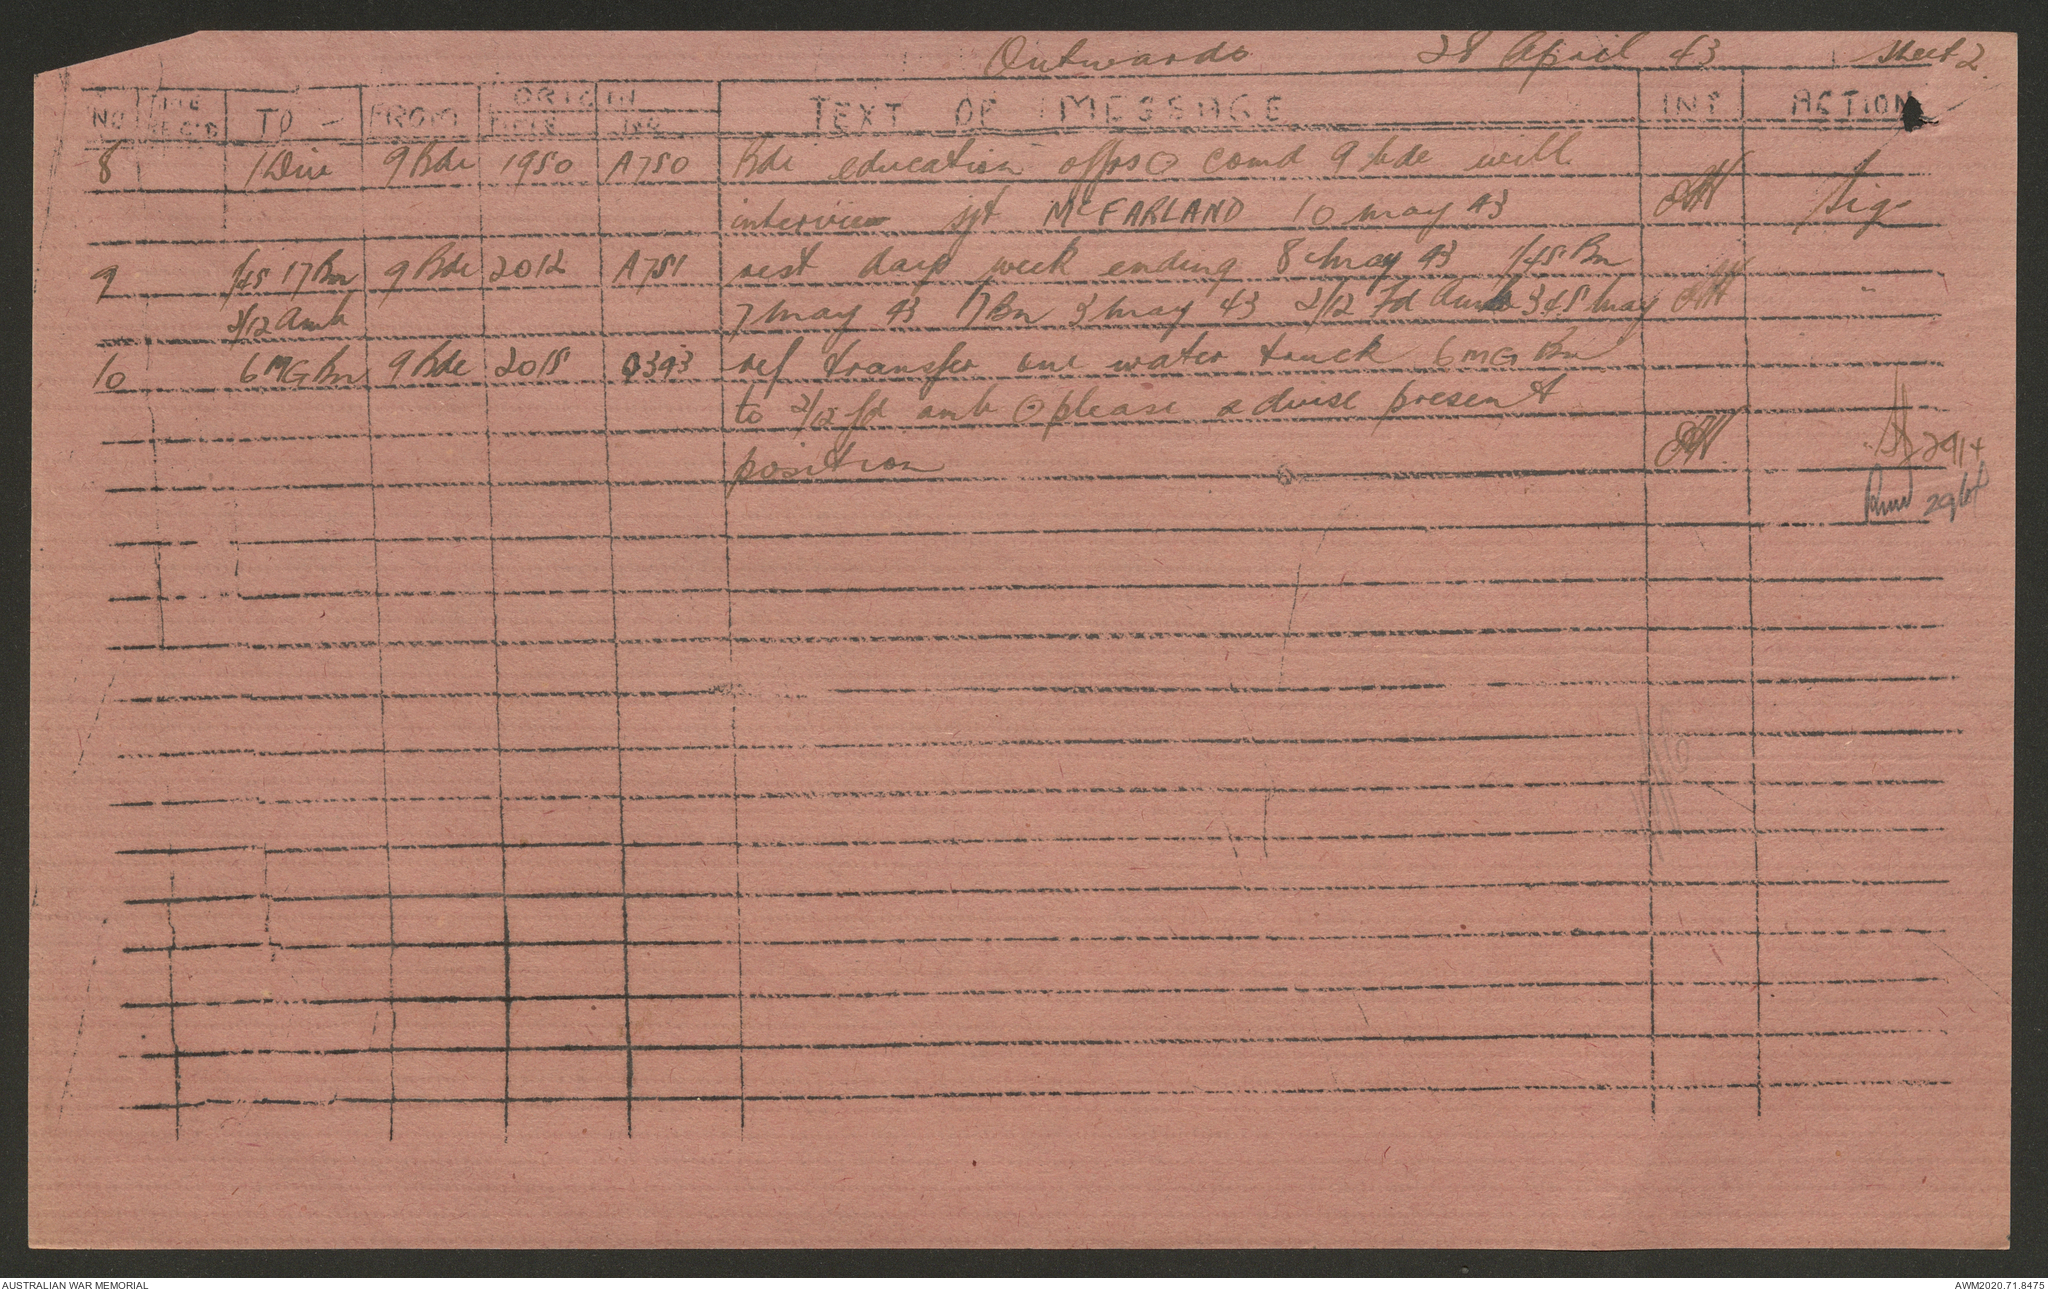 Outwards 28 April 43 Sheet 2.
NO TIME REC'D TO - FROM ORIGIN NO TEXT OF MESSAGE INT ACTION
8 1 Div 9 Bde 1950 A750 Bde education offrs ⊙ comd 9 bde will
interview sgt McFARLAND 10 may 43 Sigs
9 1/45 17 Bn 9 Bde 2012 A751 rest days week ending 8 may 43 1/45 Bn
2/12 Amb 7 may 43 17 Bn 3 may 43 2/12 Fd Amb 3 & 8 may "
10 6 MG Bn 9 Bde 2015 Q393 ref transfer one water truck 6 MG Bn
to 2/12 fd amb ⊙ please advise present
position 29/4
29/4
AUSTRALIAN WAR MEMORIAL AWM2020.71.8475